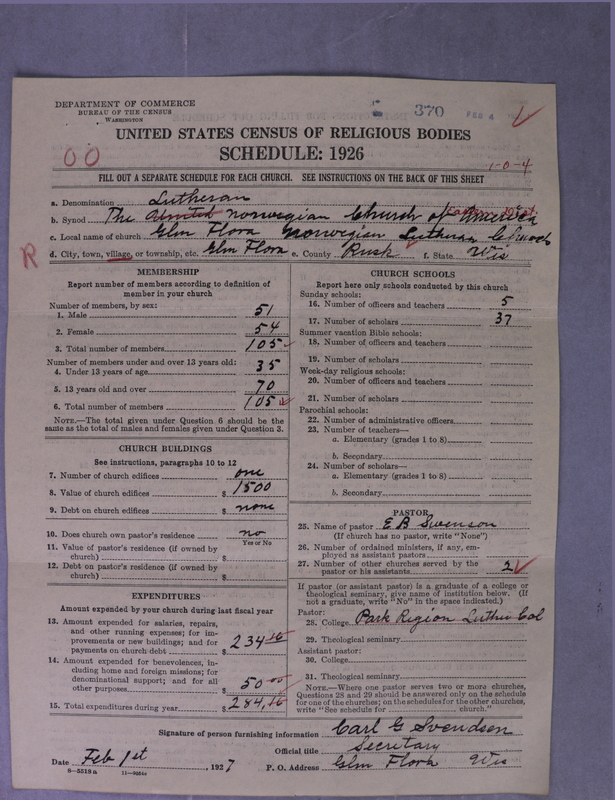 DEPARTMENT OF COMMERCE
BUREAU OF THE CENSUS
WASHINGTON
370 FEB 4
UNITED STATES CENSUS OF RELIGIOUS BODIES
00
SCHEDULE: 1926
1-0-4
FILL OUT A SEPARATE SCHEDULE FOR EACH CHURCH. SEE INSTRUCTIONS ON THE BACK OF THIS SHEET
a. Denomination Lutheran
b. Synod The United Norwegian Church of America
c. Local name of church Glen Flora Norwegian Lutheran Church
R d. City, town, village, or township, etc. Glen Flora e. County Rusk f. State Wis
MEMBERSHIP
Report number of members according to definition of member in your church
Number of members, by sex:
1. Male 51
2. Female 54
3. Total number of members 105
Number of members under and over 13 years old:
4. Under 13 years of age 35
5. 13 years old and over 70
6. Total number of members 105
NOTE.—The total given under Question 6 should be the
same as the total of males and females given under Question 3.
CHURCH BUILDINGS
See instructions, paragraphs 10 to 12
7. Number of church edifices one
8. Value of church edifices $ 1500
9. Debt on church edifices $ none
10. Does church own pastor's residence no
Yes or No
11. Value of pastor's residence (if owned by
church) $
12. Debt on pastor's residence (if owned by
church) $
EXPENDITURES
Amount expended by your church during last fiscal year
13. Amount expended for salaries, repairs,
and other running expenses; for im-
provements or new buildings; and for
payments on church debt $ 234.16
14. Amount expended for benevolences, in-
cluding home and foreign missions; for
denominational support; and for all
other purposes $ 50.00
15. Total expenditures during year $ 284.16
CHURCH SCHOOLS
Report here only schools conducted by this church
Sunday schools:
16. Number of officers and teachers 5
17. Number of scholars 37
Summer vacation Bible schools:
18. Number of officers and teachers
19. Number of scholars
Week-day religious schools:
20. Number of officers and teachers
21. Number of scholars
Parochial schools:
22. Number of administrative officers
23. Number of teachers—
a. Elementary (grades 1 to 8)
b. Secondary
24. Number of scholars—
a. Elementary (grades 1 to 8)
b. Secondary
PASTOR
25. Name of pastor E B Swenson
(If church has no pastor, write "None")
26. Number of ordained ministers, if any, em-
ployed as assistant pastors
27. Number of other churches served by the
pastor or his assistants 2
If pastor (or assistant pastor) is a graduate of a college or
theological seminary, give name of institution below. (If
not a graduate, write "No" in the space indicated.)
Pastor:
28. College Park Region Luther Col
29. Theological seminary
Assistant pastor:
30. College
31. Theological seminary
NOTE.—Where one pastor serves two or more churches,
Questions 28 and 29 should be answered only on the schedule
for one of the churches; on the schedules for the other churches,
write "See schedule for church."
Signature of person furnishing information Carl G Svendsen
Official title Secretary
Date Feb 1st, 1927 P. O. Address Glen Flora Wis